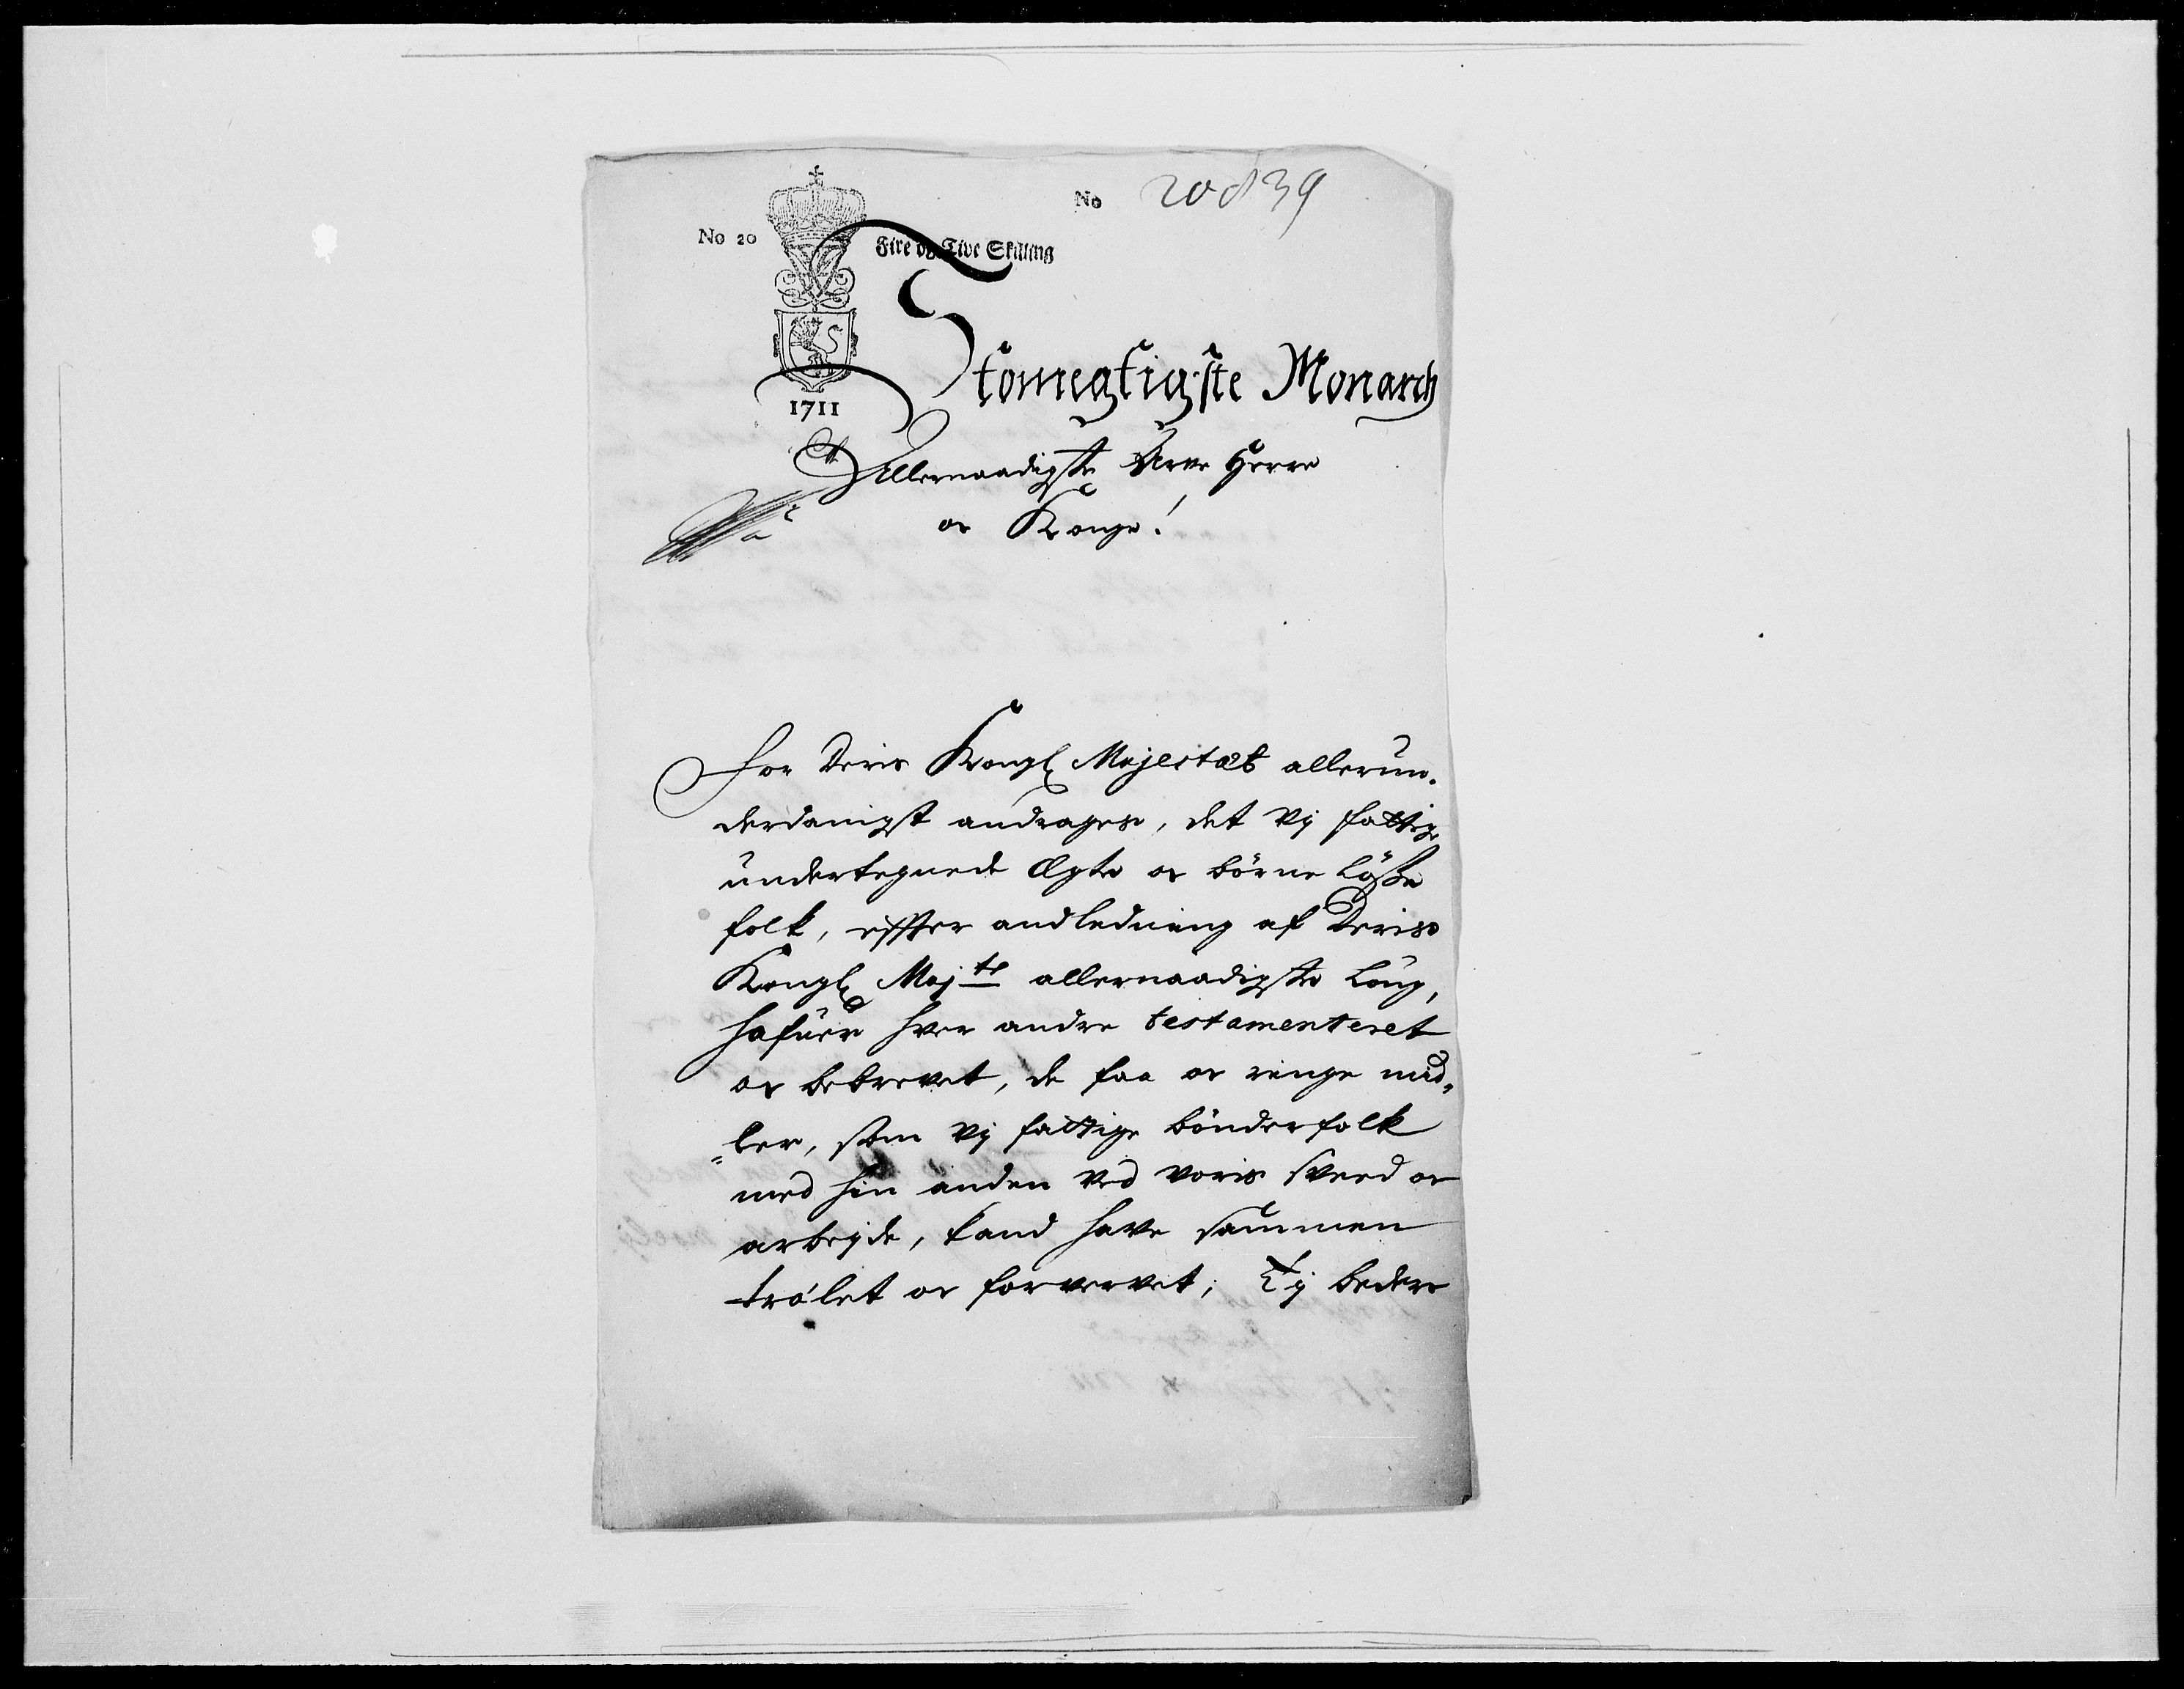 No 20839
No 20
Fire og Tive Skilling
1711
Stormegtigste Monarch
Allernaadigste Arve Herre
og Konge!
For Deris Kongl Majestæt allerun-
derdanigst andrages, det vj fattige
undertegnede Egte og börne Löse
folk, effter andledning af Deris
Kongl Majts allernaadigste Loug,
hafuer hver andre testamenteret
og bebrevet, de faa og ringe mid-
ler, som vj fattige bönderfolk
med hin anden ved voris sveed og
arbejde, kand have sammen
trælet og forvervet; Tj beder